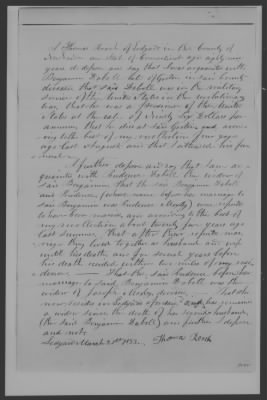 I Thomas Roach of Ledyard in the County of
New London and State of Connecticut aged eighty nine
years do depose and say that I was acquainted with
Benjamin Daboll late of Groton in said County
deceased that said Dabolt was in the military
service of the United States in the revolutionary
war, that he was a pensioner of the United
States at the rate of Ninety Six Dollars per
annum, that he died at said Groton
to the best of my recollection years
ago last August and that I attended his fu-
neral.
I further depose and say that I am ac-
quainted with Prudence Dabolt, the widow of
said Benjamin that the said Benjamin Dabolt
and Prudence (whose name before her marriage to
said Benjamin was Prudence) were reputed
to have been married, according to the best of
my recollection about twenty four years ago
last summer, that after their reputed mar-
riage they lived together as husband and wife
until his death, and for several years before
his death resided within two miles of my resi-
dence. That the said Prudence before her
marriage to said Benjamin Dabolt was the
widow of Joseph deceased, That she
now resides in Ledyard and has remained
a widow since the death of her second husband,
(the said Benjamin Dabolt) and further I depose
and not.
Ledyard March 21st 1853. Thomas Roach